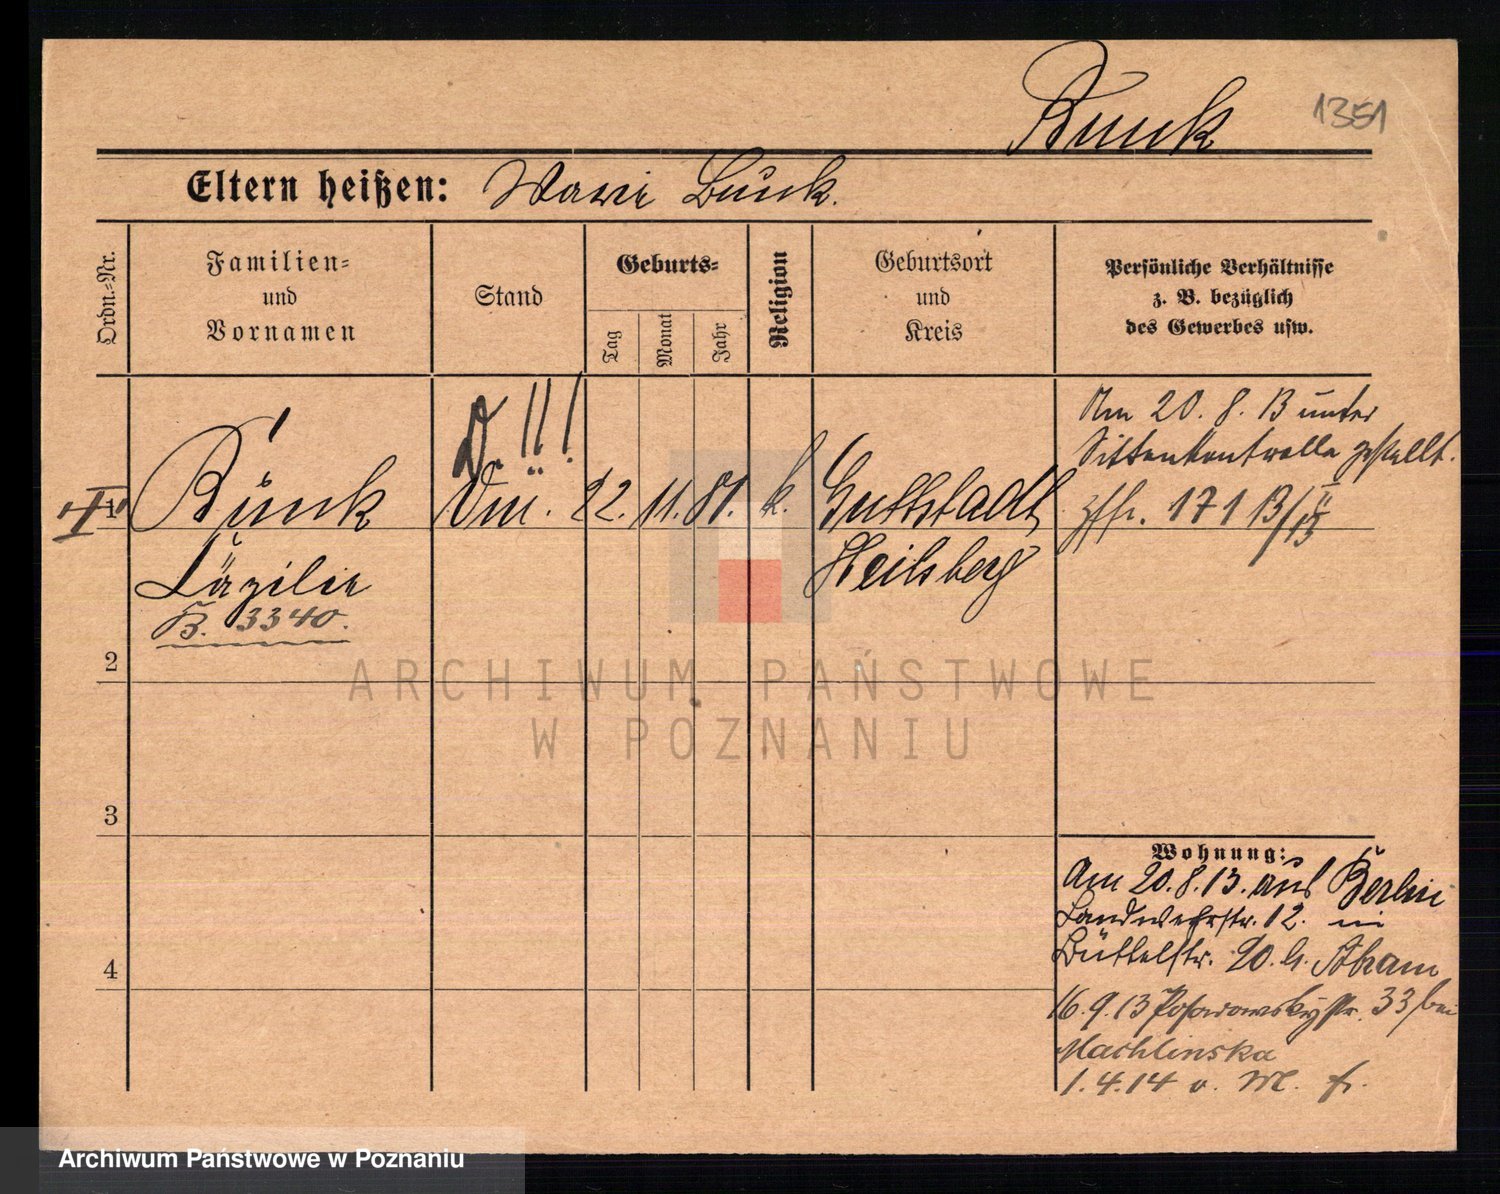 Bunk 1351
Eltern heißen: Bunk.
Ordn.-Nr.
Familien-
und
Vornamen
Stand
Geburts-
Tag
Monat
Jahr
Religion
Geburtsort
und
Kreis
Persönliche Verhältnisse
z. B. bezüglich
des Gewerbes usw.
D. !!!
1 Bunk 22. 11. 81. k. Guttstadt
Heilsberg
Cäzilie
B. 3340.
Am 20. 8. 13 unter
Sittenkontrolle gestellt.
171 13/15
2
3
4
Wohnung:
Am 20. 8. 13. aus Berlin
Landwehrstr. 12. in
Büttelstr. 20. b. Abram
16. 9. 13 Posadowskystr. 33 bei
Machlinska
1. 4. 14 v. M. fr.
ARCHIWUM PAŃSTWOWE
W POZNANIU
Archiwum Państwowe w Poznaniu